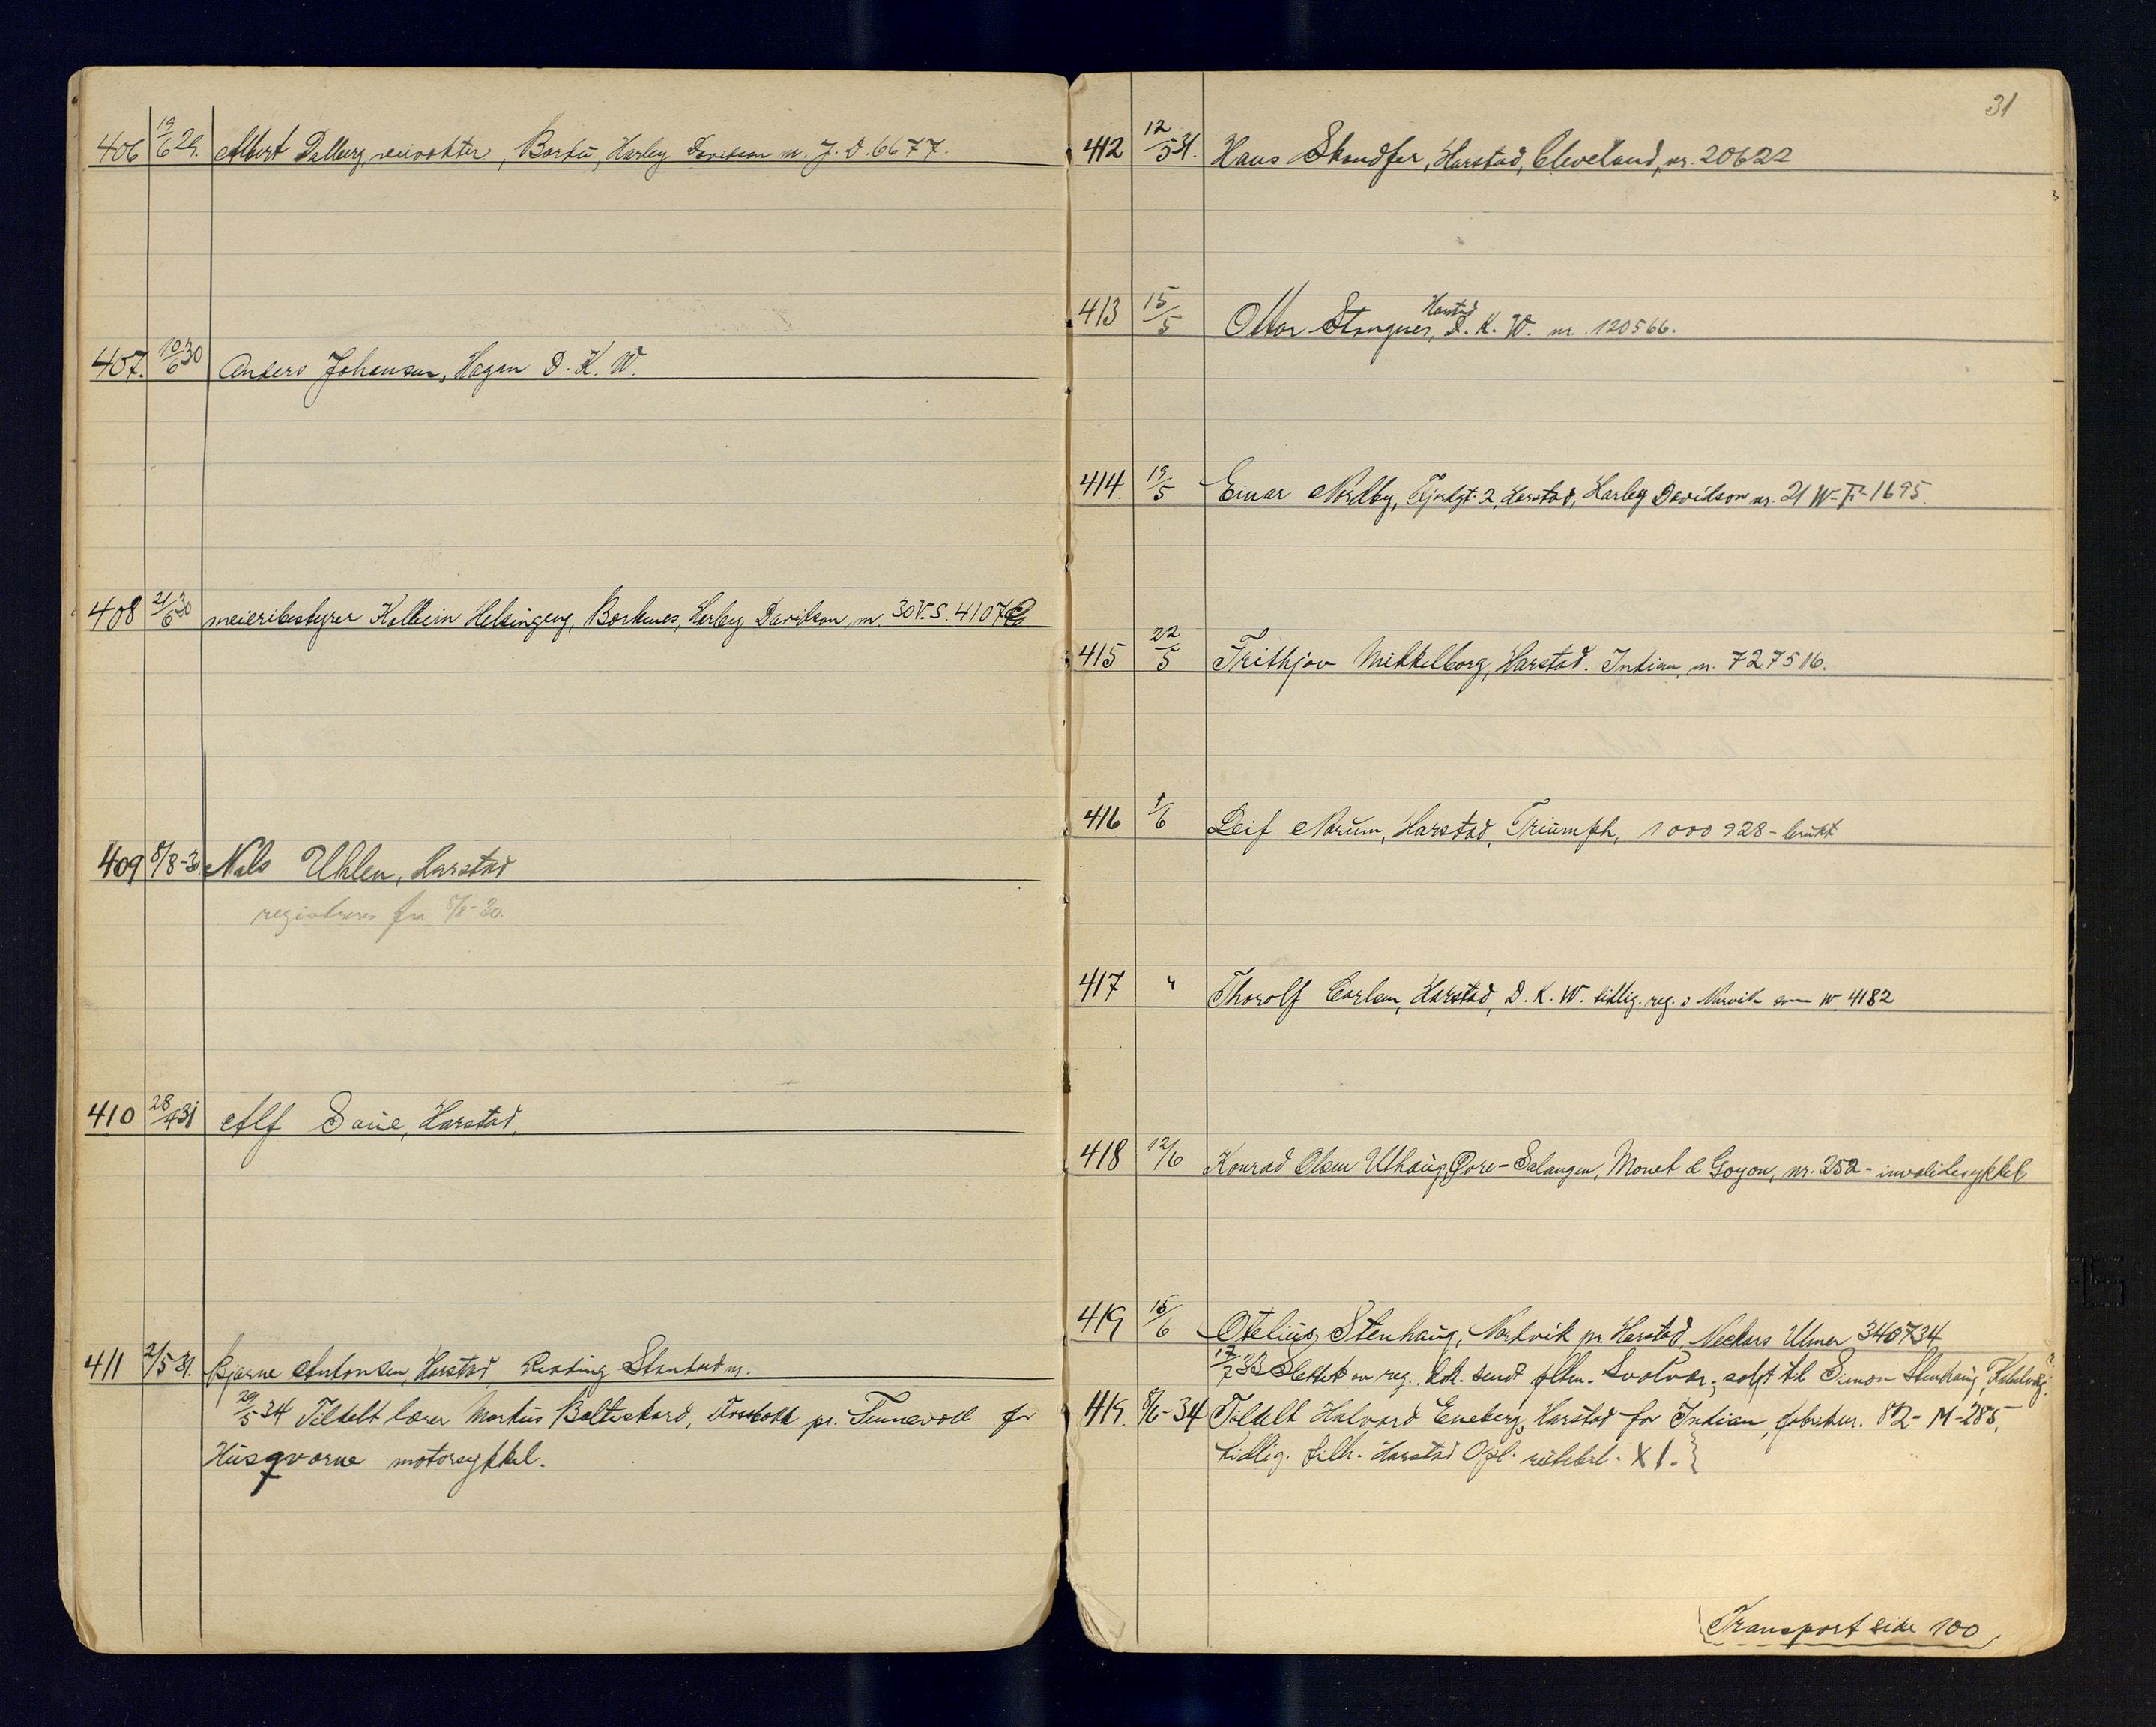 406 19/6 29. Albert Dalberg, veivokter, Bardu, Harley Davidson nr. J. D. 6677.
407. 10/6 30 Anders Johansen, Hagan D. K. W.
408 21/6 30 meieribestyrer Kolbein Helsingeng, Borkenes, Harley Davidson, nr. 30V.S. 4107
409 8/8-30. Nils Uhlen, Harstad
registreres fra 8/8-30.
410 28/4 31 Alf Saue, Harstad.
411 2/5 31. Bjarne Antonsen, Harstad, Standard nr.
29/5 34 Tildelt lærer Markus Balteskard, pr. Tennevoll for
Husqvarne motorsykkel.
31
412 12/5 31. Hans Skandfer, Harstad, Cleveland, nr. 20622
Harstad
413 15/5 Ottar Stangnes, D. K. W. nr. 120566.
414. 19/5 Einar Nordby, Fjordgt. 2, Harstad, Harley Davidson nr. 21 W-F-1695.
415 22/5 Frithjov Mikkelborg, Harstad. Indian, nr. 727516.
416 1/6 Leif Norum, Harstad, Triumph, 1000928 - brukt
417 " Thorolf Carlsen, Harstad, D. K. W. tidlig. reg. i Narvik som W 4182
418 12/6 Konrad Olsen Uthaug, Øvre-Salangen, Monet & Goyon, nr. 252 - invalidesykkel
419 15/6 Otelius Stenhaug, Nordvik pr. Harstad, Neckars Ulmer 340734
17/7 33 Slettet av reg. Dok. sendt pltm. Svolvær, solgt til Simon Stenhaug,
419. 8/6-34 Tildelt Halvard Eneberg, Harstad for Indian, fabriknr. 82-M-285,
tidlig. tilh. Harstad Opl. rutebil. X 1.
Transport side 100